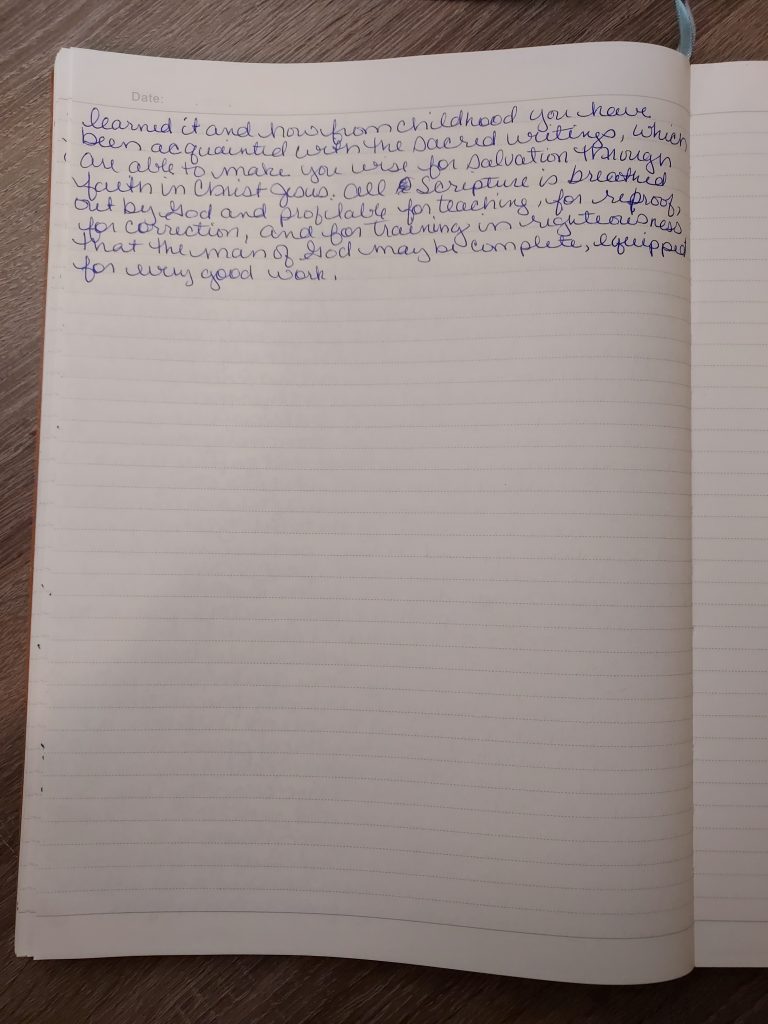 Date:
learned it and how from childhood you have
been acquainted with the sacred writings, which
are able to make you wise for salvation through
faith in Christ Jesus. All Scripture is breathed
out by God and profitable for teaching, for reproof,
for correction, and for training in righteousness
that the man of God may be complete, equipped
for every good work.